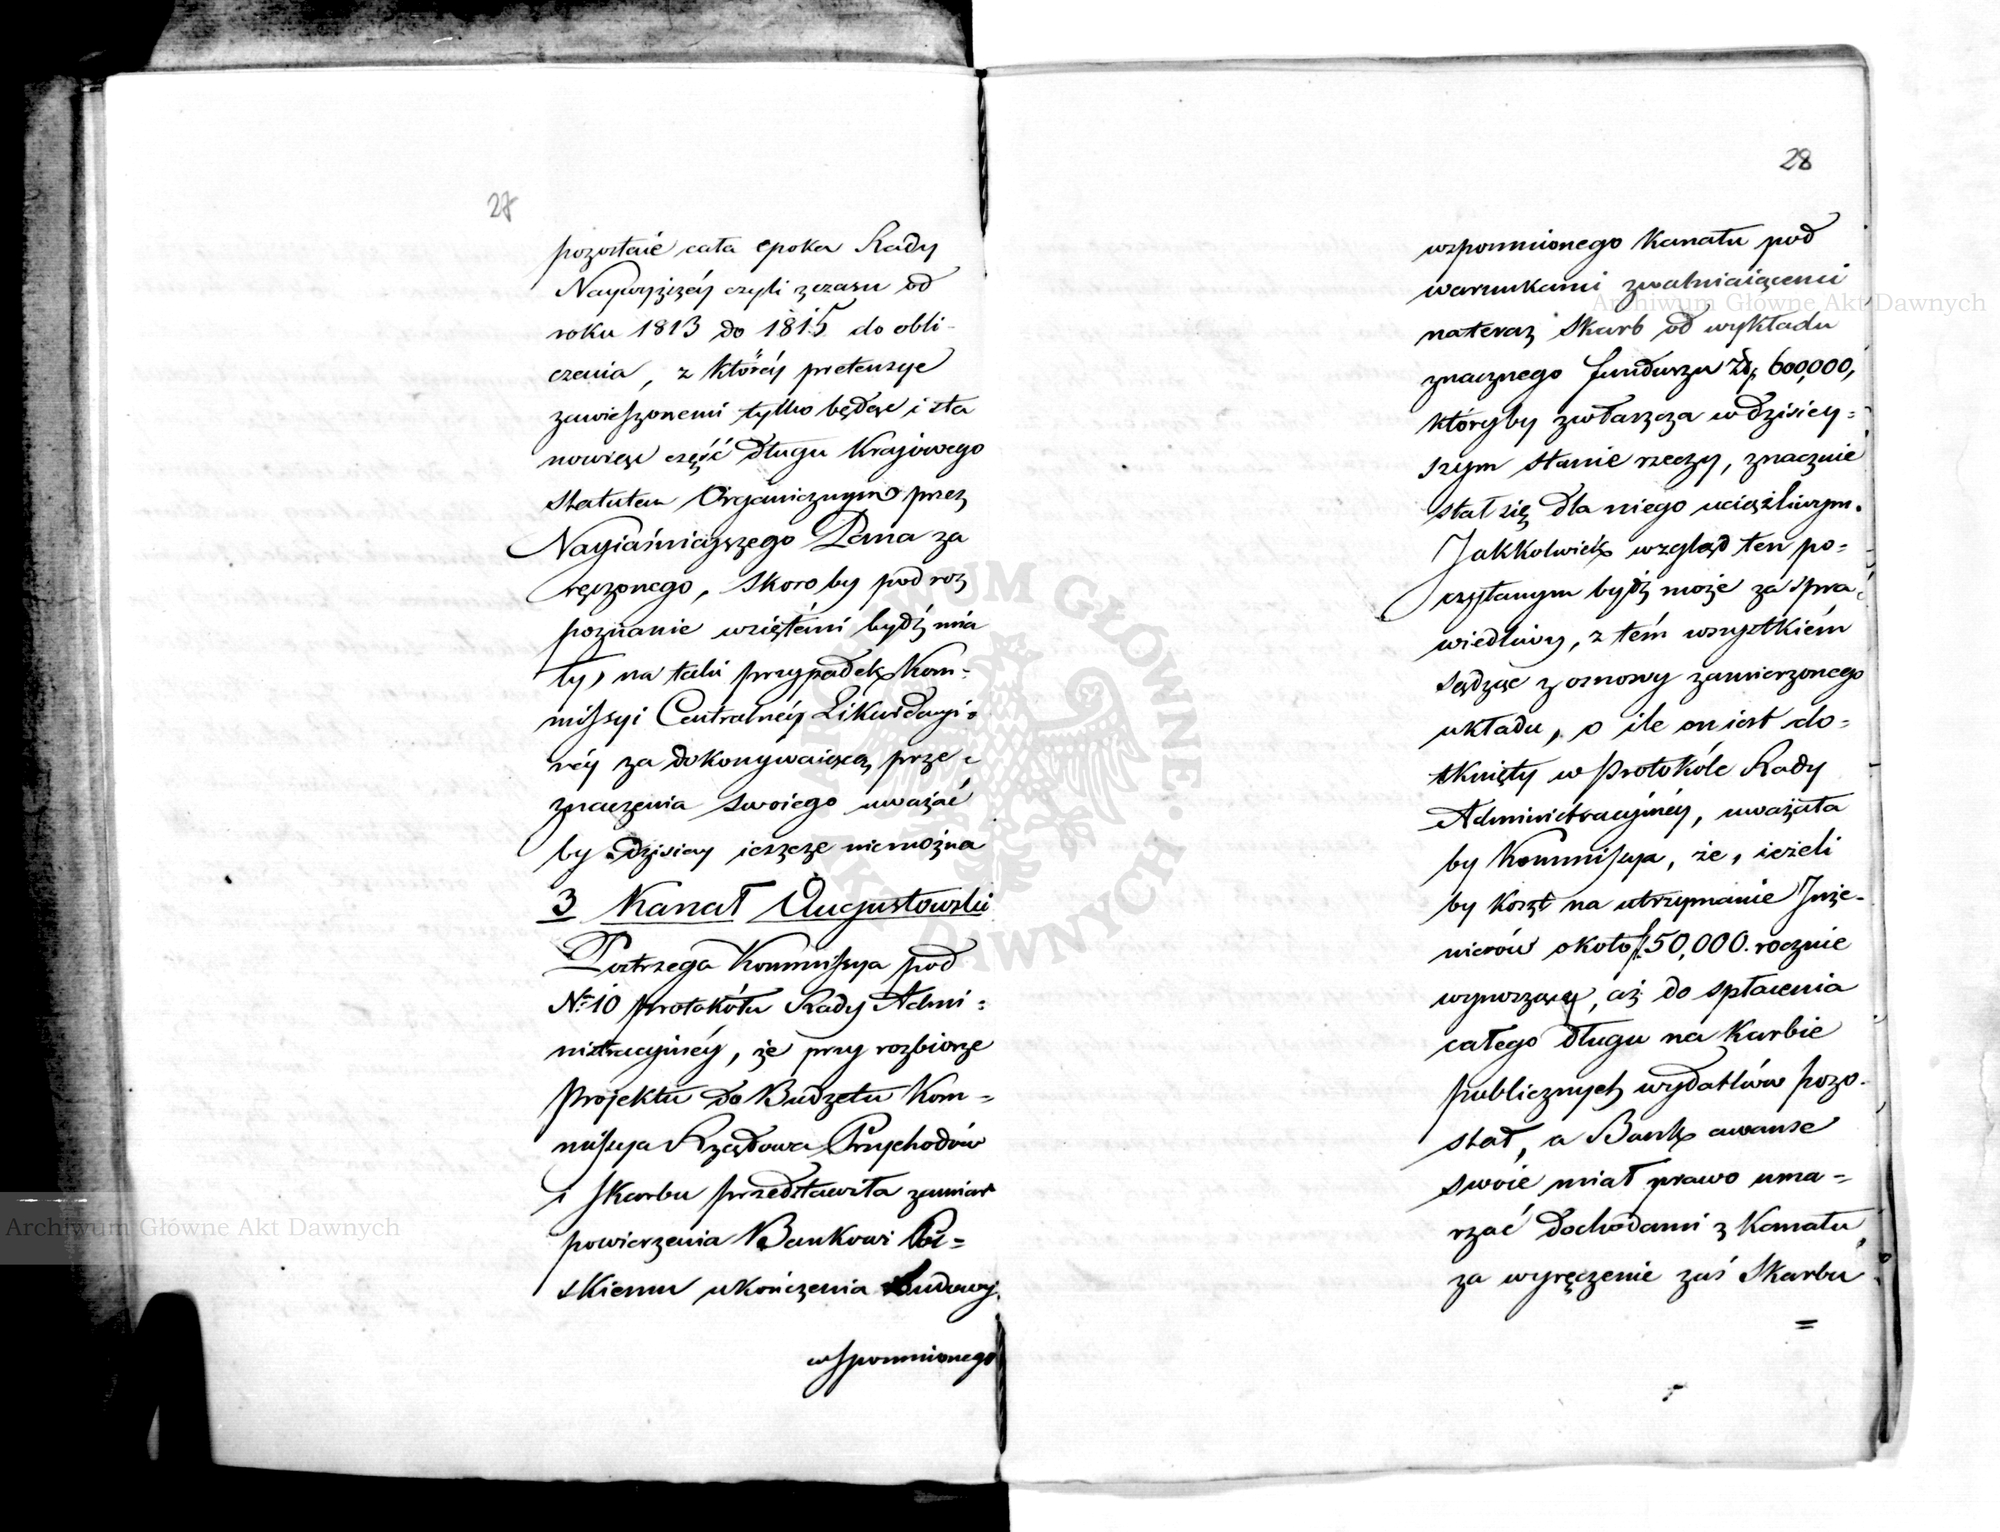 27
pozostaie cała epoka Rady
Naywyższéy czyli z czasu od
roku 1813 do 1815 do obli-
czenia, z któréy pretensye
zawieszonemi tylko będąc i sta
nowiąc część długu Krajowego
statutem Organicznym przez
Nayiaśniayszego Pana za
ręczonego, skoro by pod roz
poznanie wziętemi bydź mia
ły, na taki przypadek Kom-
missyi Centralnéy Likwidacyi-
néy za dokonywaiącą prze-
znaczenia swoiego uważać
by dzisiay ieszcze niemożna
3 Kanał Augustowski
Postrzega Kommissya pod
No 10 protokółu Rady Admi=
nistracyinéy, że przy rozbiorze
Projektu do Budżetu Kom=
missya Rządowa Przychodów
i Skarbu przedstawiła zamiar
powierzenia Bankowi Pol=
skiemu ukończenia budowy
wspomnionego
28
wspomnionego Kanału pod
warunkami zwalniaiącemi
nateraz Skarb od wykładu
znacznego funduszu Złp. 600,000,
któryby zwłaszcza w dzisiey=
szym stanie rzeczy, znacznie
stał się dla niego uciążliwym.
Jakkolwiek wzgląd ten po=
czytanym bydź może za spra=
wiedliwy, z tém wszystkiém
sądząc z osnowy zamierzonego
układu, o ile on iest do=
tknięty w Protokóle Rady
Administracyinéy, uważała
by Kommissya, że, ieżeli
by koszt na utrzymanie Inże-
nierów około f. 50,000. rocznie
wynoszący, aż do spłacenia
całego długu na Karbie
publicznych wydatków pozo-
stał, a Bank awanse
swoie miał prawo uma=
rzać dochodami z Kanału,
za wyręczenie zaś Skarbu
=
Archiwum Główne Akt Dawnych
Archiwum Główne Akt Dawnych
ARCHIWUM GŁÓWNE AKT DAWNYCH